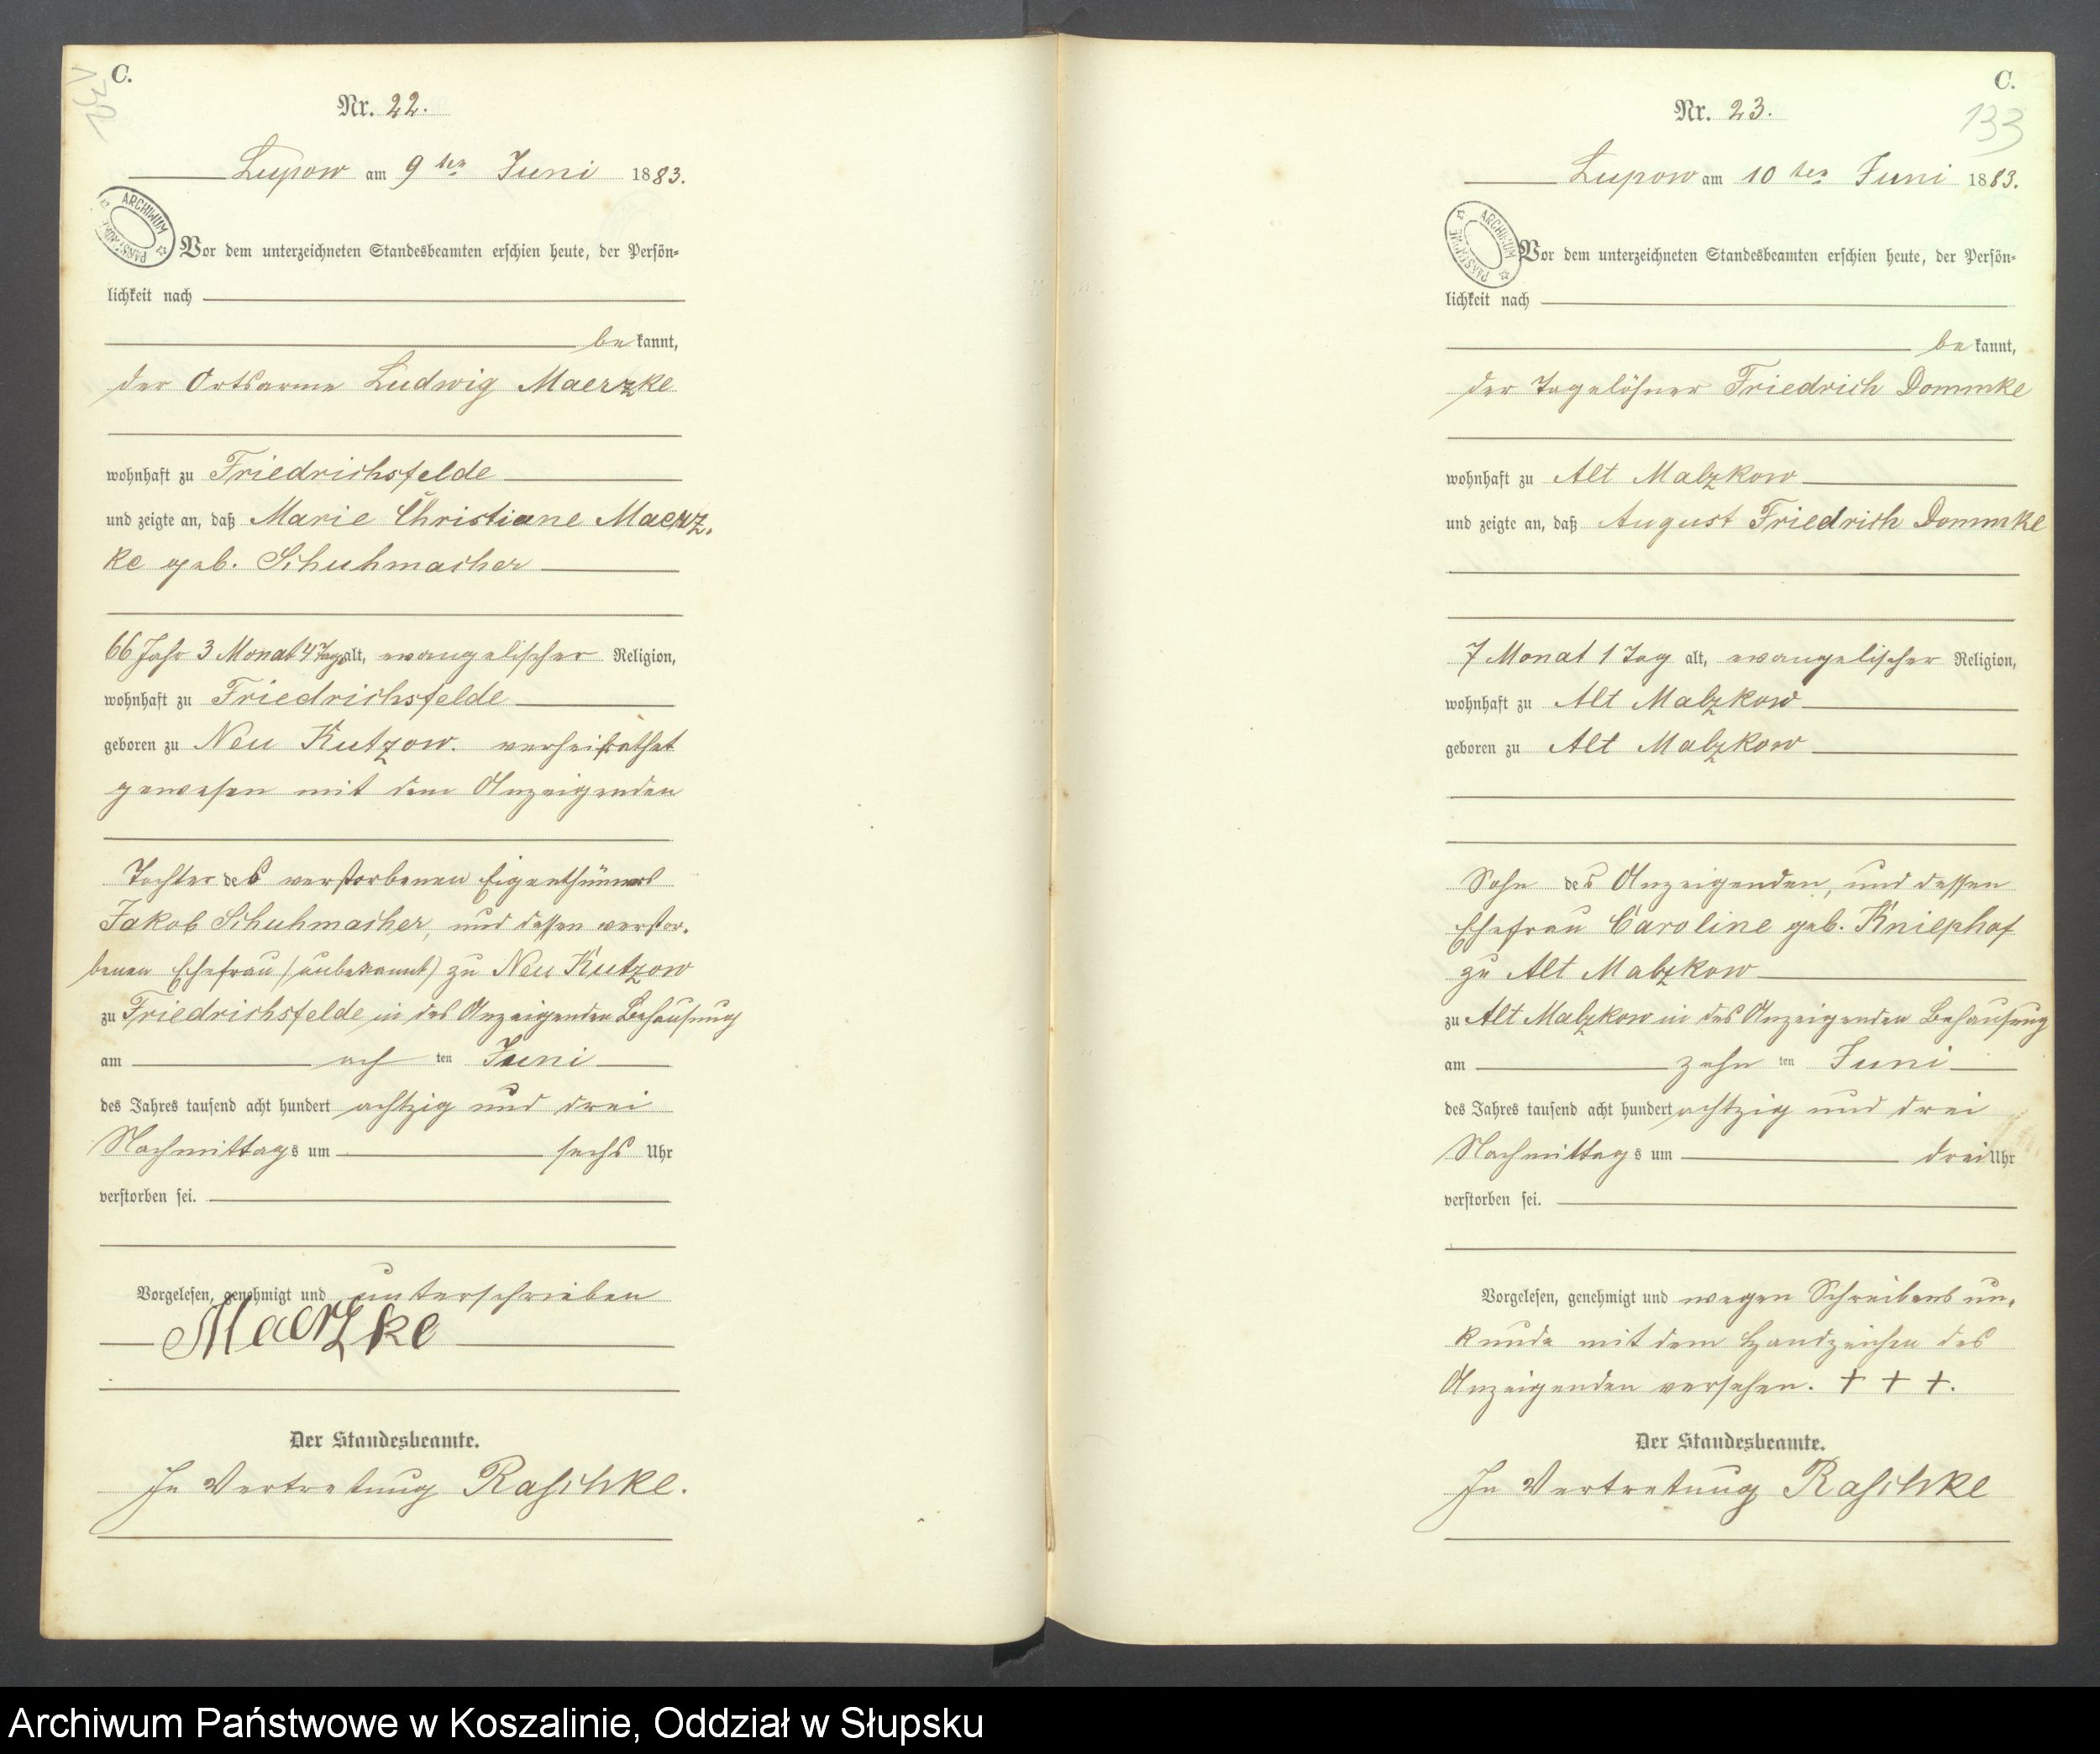 C.
132
Nr. 22.
Lupow am 9 ten Juni 1883.
ARCHIWUM PAŃSTWOWE
Vor dem unterzeichneten Standesbeamten erschien heute, der Persön-
lichkeit nach
bekannt,
der Ortsarme Ludwig Maerzke
wohnhaft zu Friedrichsfelde
und zeigte an, daß Marie Christiane Maerz-
ke geb. Schuhmacher
66 Jahr 3 Monat 4 Tage alt, evangelischer Religion,
wohnhaft zu Friedrichsfelde
geboren zu Neu Kutzow. verheirathet
gewesen mit dem Anzeigenden
Tochter des verstorbenen Eigenthümers
Jakob Schuhmacher, und dessen verstor-
benen Ehefrau (unbekannt) zu Neu Kutzow
zu Friedrichsfelde in des Anzeigenden Behausung
am ach ten Juni
des Jahres tausend acht hundert achtzig und drei
Nachmittags um sechs Uhr
verstorben sei.
Vorgelesen, genehmigt und unterschrieben
Maerzke
Der Standesbeamte.
In Vertretung Raschke.
C.
133
Nr. 23.
Lupow am 10 ten Juni 1883.
ARCHIWUM PAŃSTWOWE
Vor dem unterzeichneten Standesbeamten erschien heute, der Persön-
lichkeit nach
bekannt,
der Tagelöhner Friedrich Dommke
wohnhaft zu Alt Malzkow
und zeigte an, daß August Friedrich Dommke
7 Monat 1 Tag alt, evangelischer Religion,
wohnhaft zu Alt Malzkow
geboren zu Alt Malzkow
Sohn des Anzeigenden, und dessen
Ehefrau Caroline geb. Kniephof
zu Alt Malzkow
zu Alt Malzkow in des Anzeigenden Behausung
am zehn ten Juni
des Jahres tausend acht hundert achtzig und drei
Nachmittags um drei Uhr
verstorben sei.
Vorgelesen, genehmigt und wegen Schreibens un-
kunde mit dem Handzeichen des
Anzeigenden versehen. + + +.
Der Standesbeamte.
In Vertretung Raschke
Archiwum Państwowe w Koszalinie, Oddział w Słupsku